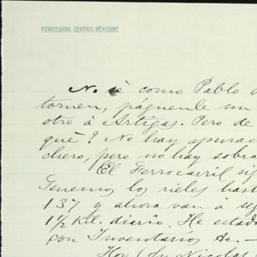 FERROCARRIL CENTRAL MEXICANO
No sé como Pablo
tomen, páguenle un
otro á Artigas. Pero de
qué? No hay apuros
chero, pero no hay sobra
El Ferrocarril sig
Tenemos los rieles hast
137 y ahora van á se
1½ Kil. diario. He estado
con Inventarios &c. —
Hoy Nicolas